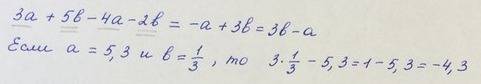 3a + 5b - 4a - 2b = -a + 3b = 3b - a
Если a = 5,3 и b = 1/3, то 3 · 1/3 - 5,3 = 1 - 5,3 = -4,3